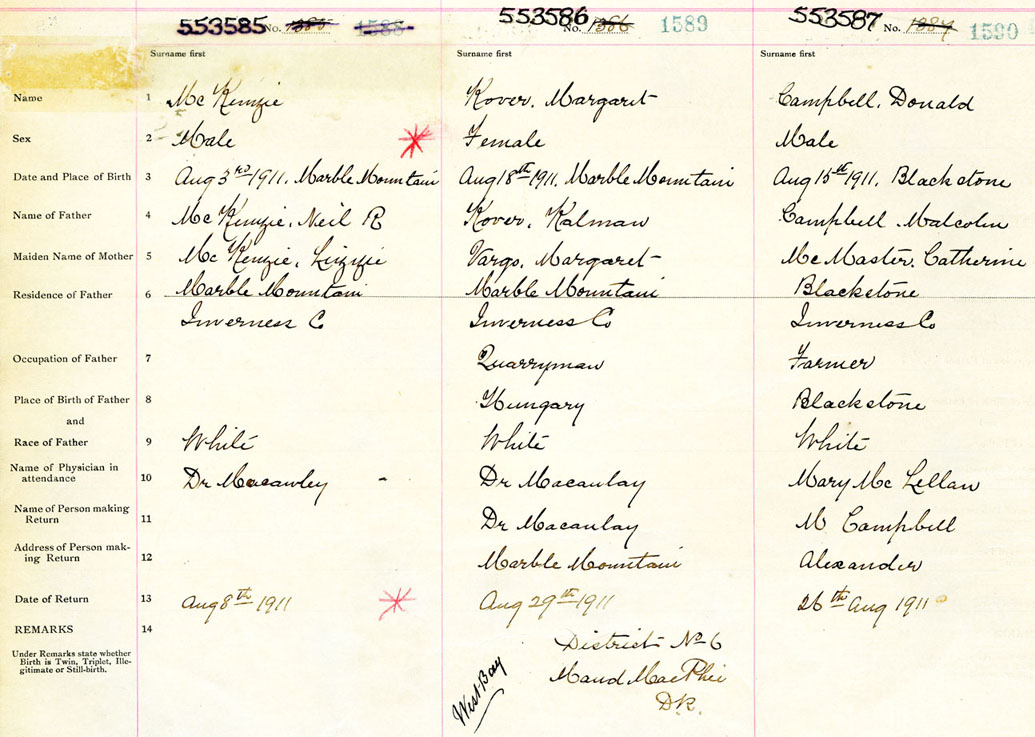 553585 No. 1385 1588 553586 No. 1386 1589 553587 No. 1387 1590
Surname first Surname first Surname first
Name 1 Mc Kenzie Kover, Margaret Campbell, Donald
Sex 2 Male Female Male
Date and Place of Birth 3 Aug 3rd 1911, Marble Mountain Aug 18th 1911, Marble Mountain Aug 15th 1911, Blackstone
Name of Father 4 Mc Kenzie, Neil R Kover, Kalman Campbell, Malcolm
Maiden Name of Mother 5 Mc Kenzie, Lizzie Vargo, Margaret Mc Master, Catherine
Residence of Father 6 Marble Mountain Marble Mountain Blackstone
Inverness Co Inverness Co Inverness Co
Occupation of Father 7 Quarryman Farmer
Place of Birth of Father 8 Hungary Blackstone
and
Race of Father 9 White White White
Name of Physician in
attendance 10 Dr Macawley - Dr Macaulay Mary Mc Lellan
Name of Person making
Return 11 Dr Macaulay M Campbell
Address of Person mak-
ing Return 12 Marble Mountain Alexander
Date of Return 13 Aug 8th 1911 Aug 29th 1911 26th Aug 1911
REMARKS 14
Under Remarks state whether
Birth is Twin, Triplet, Ille-
gitimate or Still-birth.
District No 6
Maud MacPhie
D.R.
West Bay